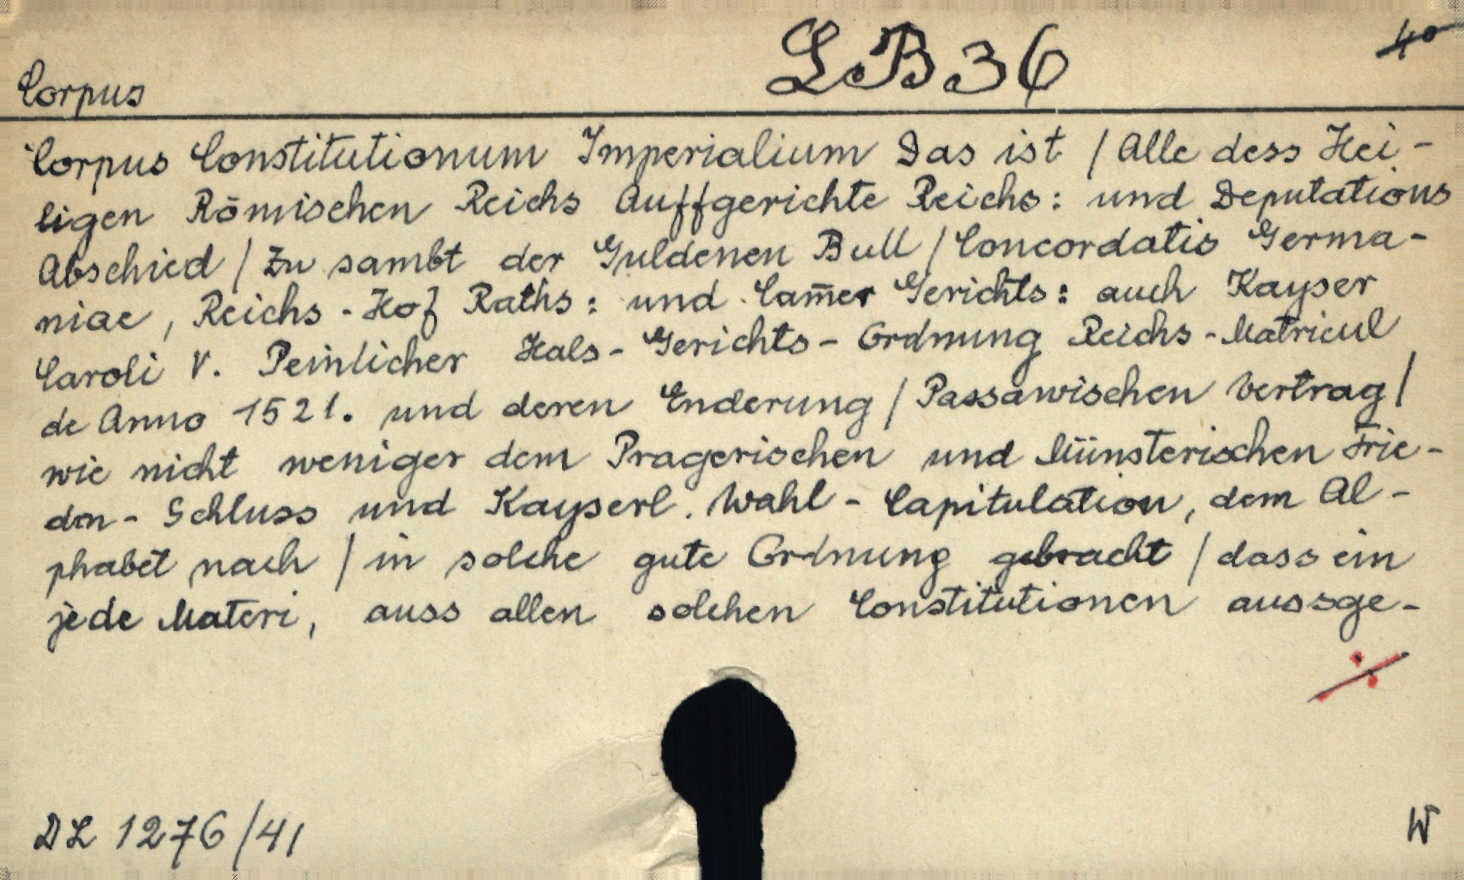 LB 36
4°
Corpus
Corpus Constitutionum Imperialium Das ist / Alle dess Hei-
ligen Römischen Reichs Auffgerichte Reichs: und Deputations
Abschied / Zu sambt der Guldenen Bull / Concordatis Germa-
niae, Reichs-Hof Raths: und Cam̅er Gerichts: auch Kayser
Caroli V. Peinlicher Hals-Gerichts-Ordnung Reichs-Matricul
de Anno 1521. und deren Enderung / Passawischen Vertrag /
wie nicht weniger dem Pragerischen und Münsterischen Frie-
den-Schluss und Kayserl. Wahl-Capitulation, dem Al-
phabet nach / in solche gute Ordnung gebracht / dass ein
jede Materi, auss allen solchen Constitutionen aussge-
./.
DL 1276/41
W